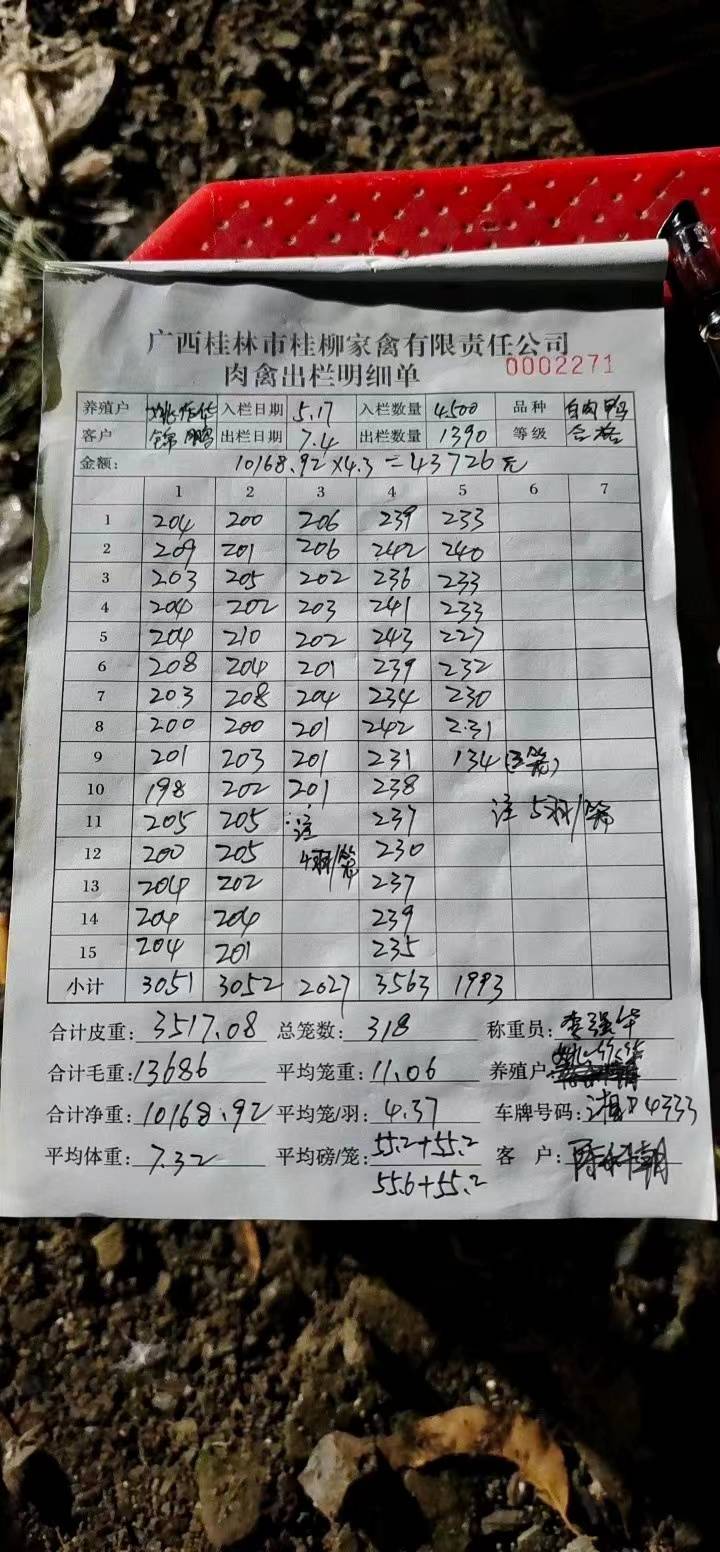 广西桂林市桂柳家禽有限责任公司
肉禽出栏明细单 0002271
养殖户 入栏日期 5.17 入栏数量 4500 品种 白肉鸭
客户 锦鹏 出栏日期 7.4 出栏数量 1390 等级 合格
金额: 10168.92×4.3=43726元
1 2 3 4 5 6 7
1 204 200 206 239 233
2 209 201 206 242 240
3 203 205 202 236 233
4 204 202 203 241 233
5 204 210 202 243 227
6 208 204 201 239 232
7 203 208 204 234 230
8 200 200 201 242 231
9 201 203 201 231 134(三笼)
10 198 202 201 238
11 205 205 注 237 注 5羽/笼
12 200 205 4羽/笼 230
13 204 202 237
14 204 204 239
15 204 201 235
小计 3051 3052 2027 3563 1993
合计皮重: 3517.08 总笼数: 318 称重员: 李强华
合计毛重: 13686 平均笼重: 11.06 养殖户:
合计净重: 10168.92 平均笼/羽: 4.37 车牌号码: 湘D4333
平均体重: 7.32 平均磅/笼: 55.2+55.2 客户:
55.6+55.2